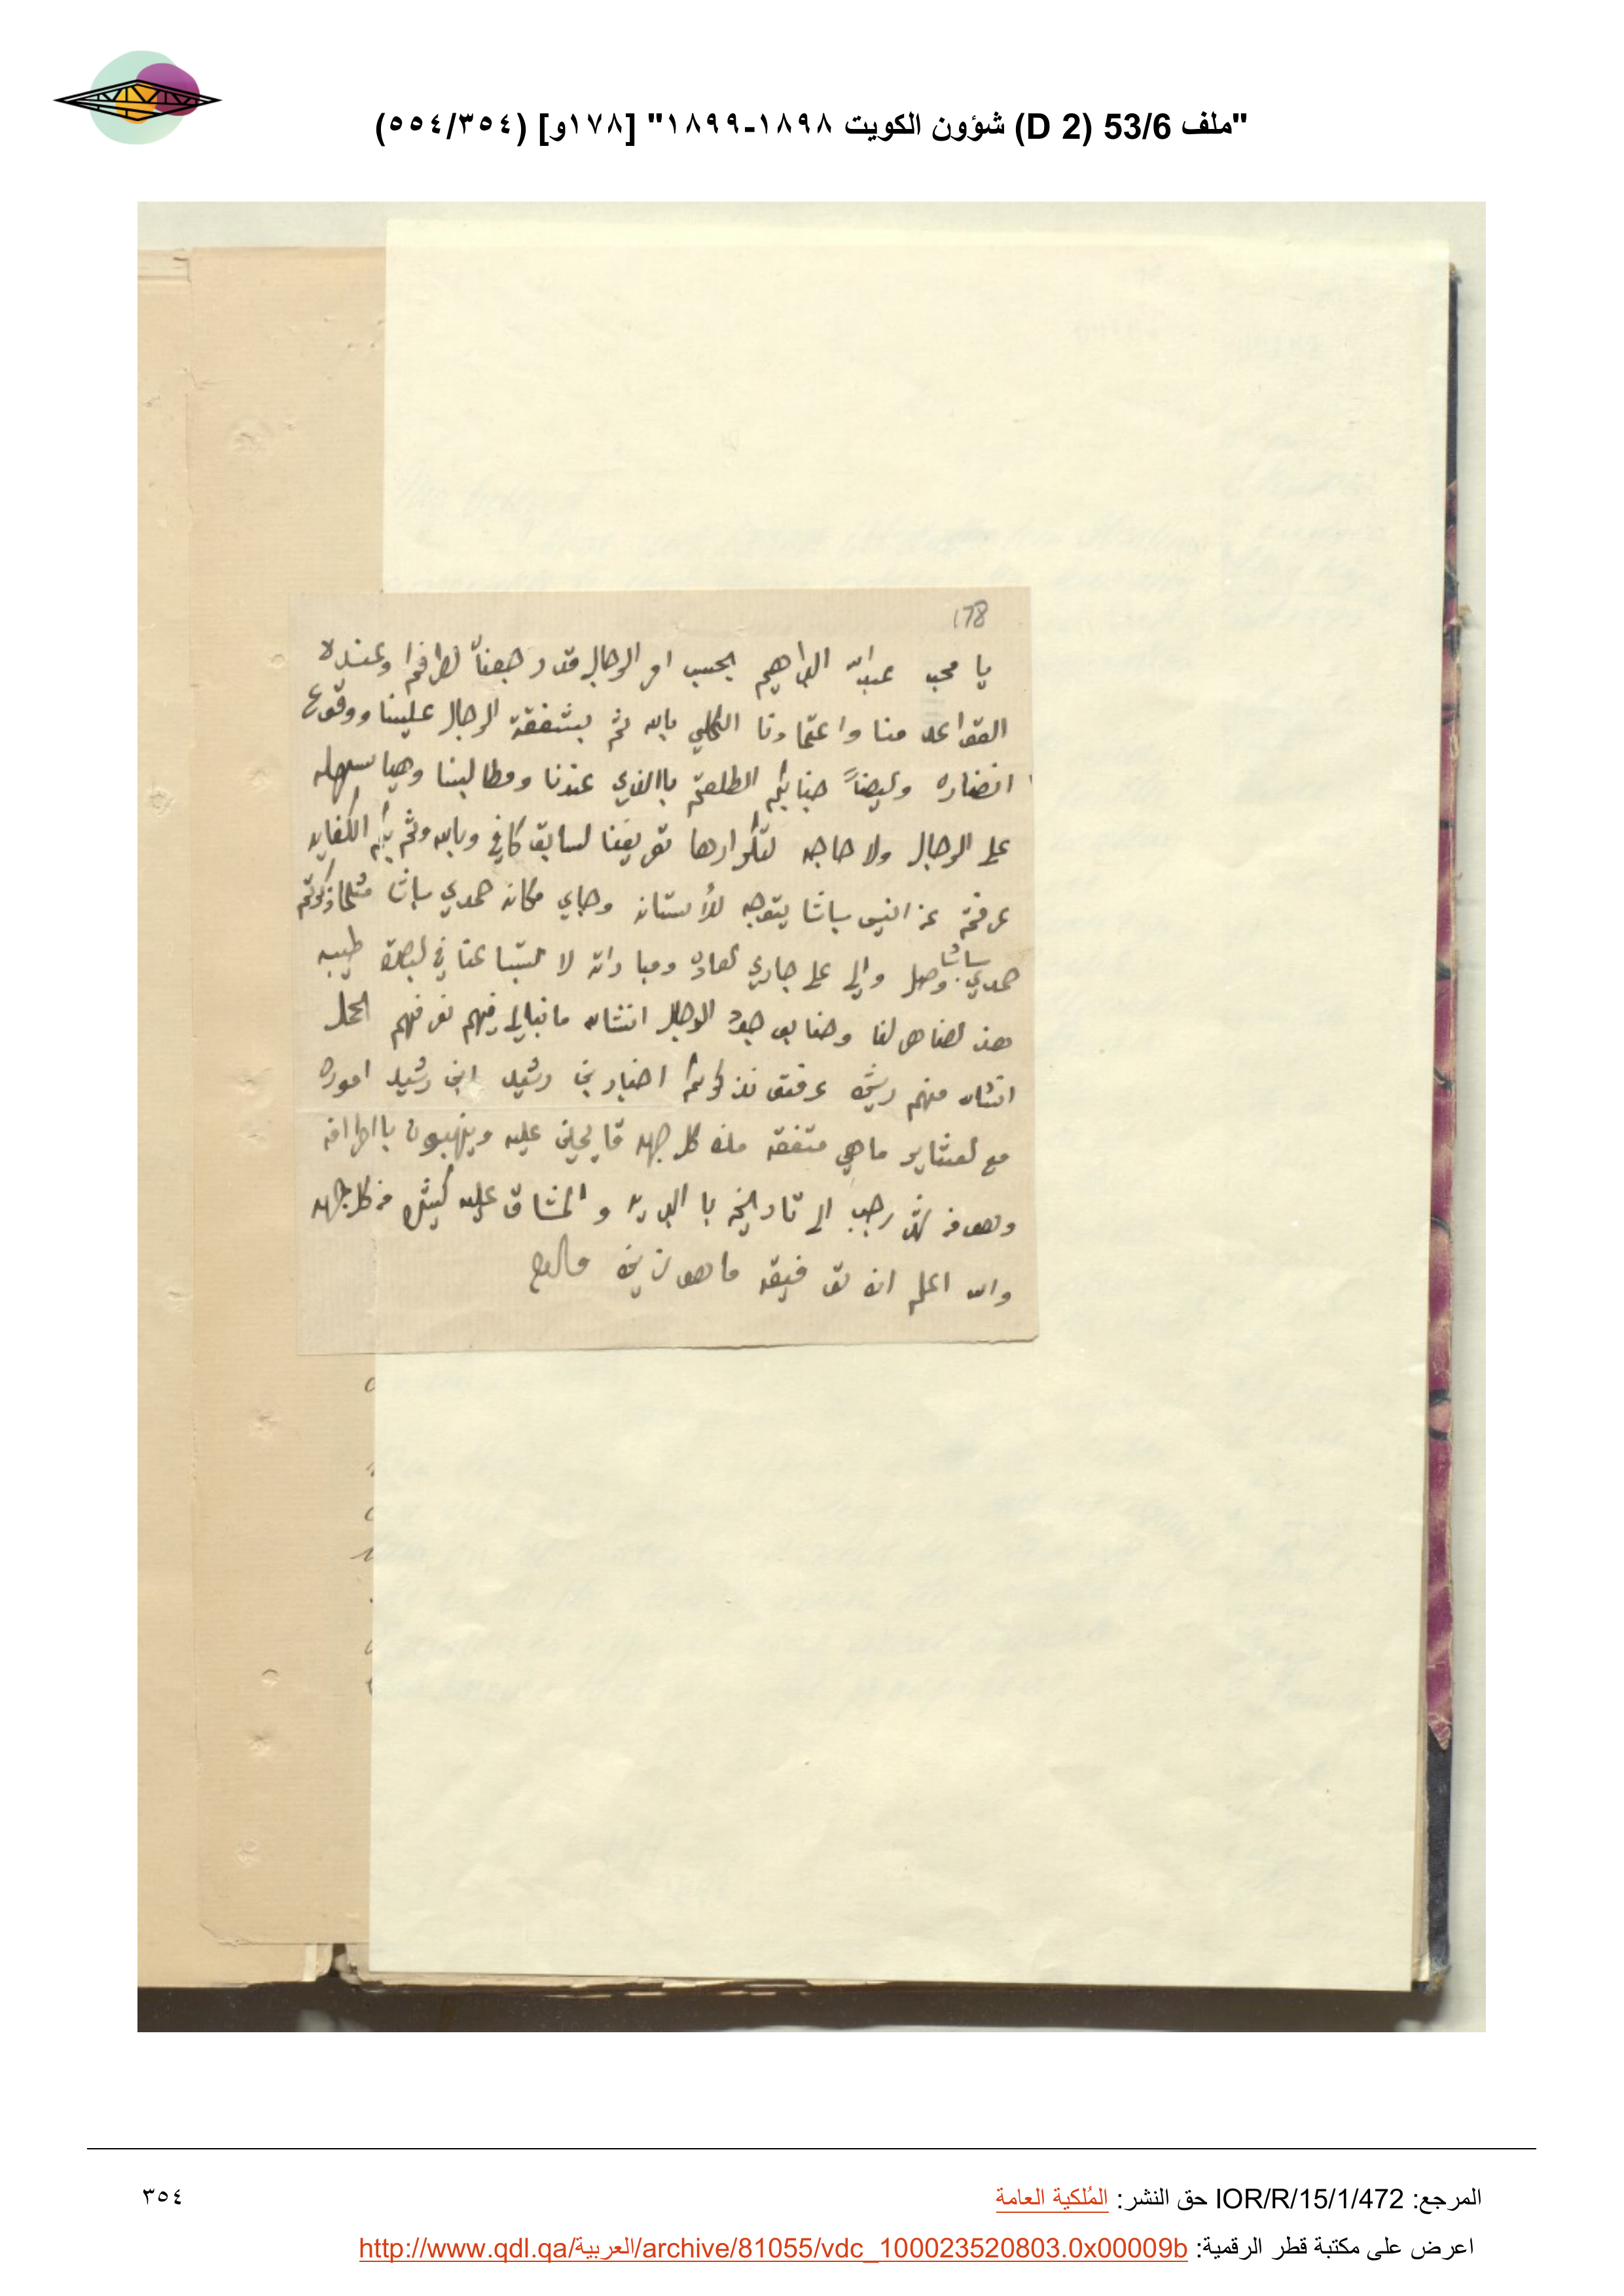 "ملف 53/6 (D 2) شؤون الكويت ١٨٩٨-١٨٩٩" [١٧٨و] (٣٥٤/٥٥٤)
178
يا محب عبدالله البراهيم بحسب امر الرجال قد رجعنا لطرافكم وعندلا
القواعد منا واعتمادنا الكلي بالله ثم بشفقة الرجال علينا ووقوع
انضاره وايضاً جنابكم اطلعتم باالذي عندنا ومطالبنا وهيا سهله
على الرجال ولا حاجه لتكرارها تعريفنا لسابق كافي وبالله وثم بكم الكفايه
عرفتم عن انيس باشا يتوجه للأستانه وجاي مكانه حمدي باشا مثلما ذكرتم
حمدي باشا وصل والي على جاري لعاده ومباداته لا لتباعنا في لبصره طيبه
هذ لضاهر لنا وحنا بوجود الرجال انشاالله مانبالي فيهم نعرفهم المحل
انشاالله منهم عرفتو نذكركم اخبار بن رشيد ابن رشيد اموره
مع لعشاير ماهي متفقه من كل جهه قايمين عليه وينهبون بااطرافه
وهو من شهر رجب الى تاريخه با البريه والمشاق عليه كثير من كل جهه
والله اعلم ان توفيقه ماهو زين
المرجع: IOR/R/15/1/472 حق النشر: المُلكية العامة
٣٥٤
اعرض على مكتبة قطر الرقمية: http://www.qdl.qa/العربية/archive/81055/vdc_100023520803.0x00009b